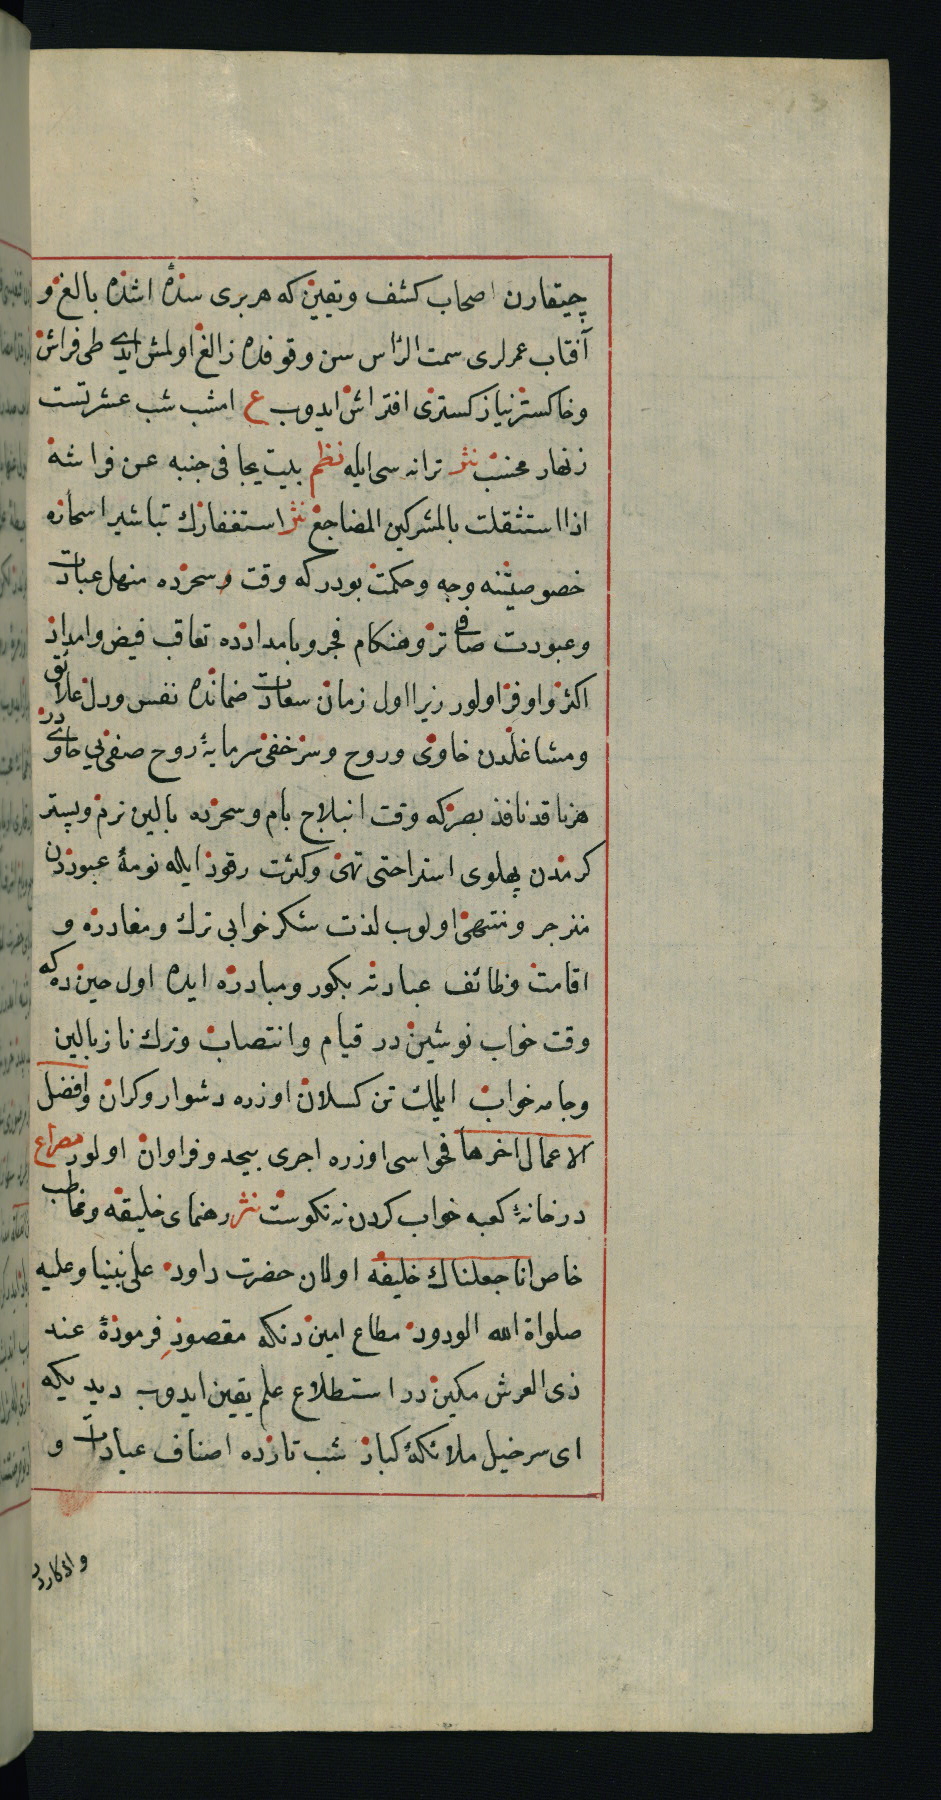 چیقارن اصحاب کشف ویقین که هر بری سنۀ اشده بالغ و
آفتاب عمرلری سمت الرأس سن وقوفده زالغ اولمش ایدی طی فراش
وخاکستر نیاز کستری افتراش ایدوب ع امشب شب عشرتست
زنهار مخسب نثر ترانه سی ایله نظم یبیت یجافی جنبه عن فراشه
اذا استثقلت بالمشرکین المضاجع نثر استغفارك تباشیر اسحاره
خصوصیتنه وجه وحکمت بودر که وقت سحرده منهل عبادت
وعبودت صافی تر وهنکام فجر وبامدادده تعاقب فیض وامداد
اکثر واوفر اولور زیرا اول زمان سعادت ضمانده نفس ودل علایق
ومشاغلدن خاوی وروح وسر خفی سرمایۀ روح صفی یی حاوی در
هر ناقد نافذ بصر که وقت انبلاج بام وسحرده بالین نرم وبستر
کرمدن پهلوی استراحتی تهی وکثرت رقود ایله نومۀ عبوددن
منزجر ومنتهی اولوب لذت شکر خوابی ترك ومغادره و
اقامت وظائف عبادته بکور ومبادره ایده اول حین ده که
وقت خواب نوشین در قیام وانتصاب وترك ناز بالین
وجامه خواب ایلمك تن کسلان اوزره دشوار وکران وافضل
الاعمال احزها فحواسی اوزره اجری بیحد وفراوان اولور مصراع
در خانۀ کعبه خواب کردن نه نکوست نثر رهنمای خلیقه ومخاطب
خاص انا جعلناك خلیفه اولان حضرت داود علی نبینا وعلیه
صلواة الله الودود مطاع امین دنکه مقصود فرمودۀ عند
ذی العرش مکین در استطلاع علم یقین ایدوب دیدیکه
ای سرخیل ملائکۀ کبار شب تارده اصناف عبادات و
واذکاردن